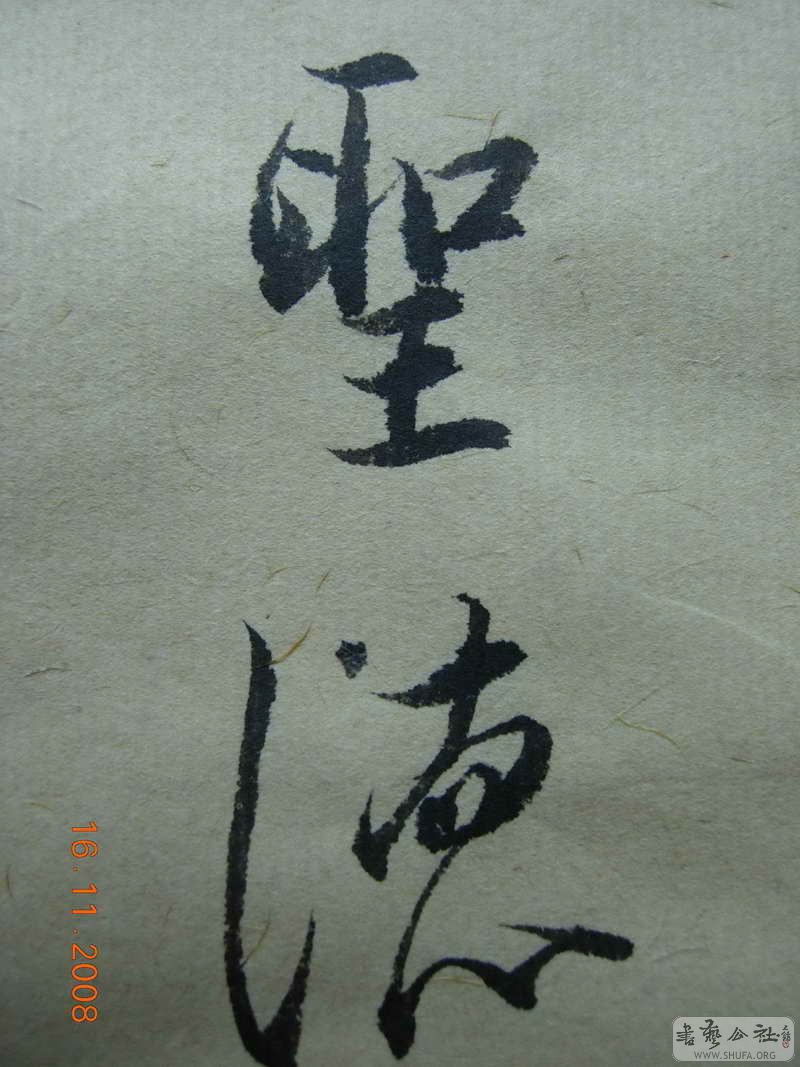 聖
德
16.11.2008
書藝公社
WWW.SHUFA.ORG